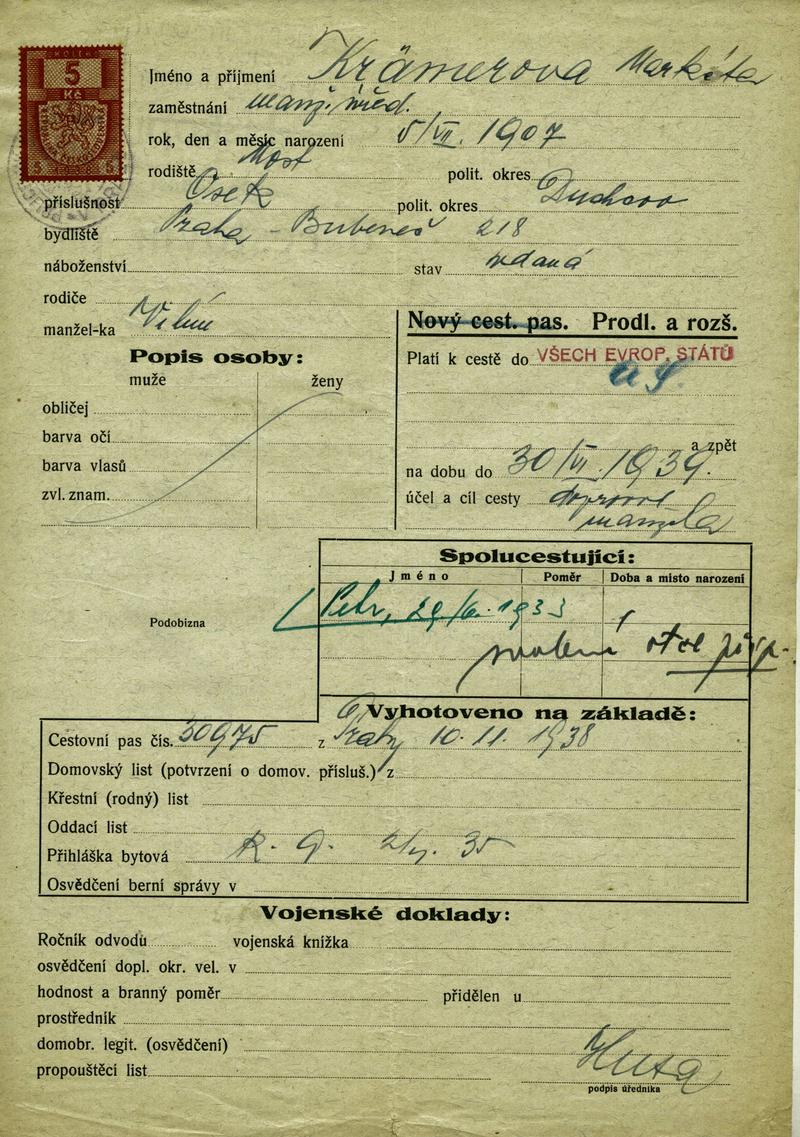 KOLEK
5
Kč
Jméno a příjmení Krämerova Markéta
zaměstnání manž. úřed.
rok, den a měsíc narození 5/VII. 1907
rodiště Most polit. okres
příslušnost Osek polit. okres Duchcov
bydliště Praha - Bubeneč 218
náboženství stav vdaná
rodiče
manžel-ka Vilém
Nový cest. pas. Prodl. a rozš.
Popis osoby:
muže ženy
obličej
barva očí
barva vlasů
zvl. znam.
Platí k cestě do VŠECH EVROP. STÁTŮ
a zpět
na dobu do 30/VI. 1939.
účel a cíl cesty doprovod
manžela
Spolucestující:
Jméno Poměr Doba a místo narození
Petr, 29/6. 1933
svolení otce přip.
Podobizna
Vyhotoveno na základě:
Cestovní pas čís. 30975 z Prahy 10. 11. 1938
Domovský list (potvrzení o domov. přísluš.) z
Křestní (rodný) list
Oddací list
Přihláška bytová
Osvědčení berní správy v
Vojenské doklady:
Ročník odvodu vojenská knížka
osvědčení dopl. okr. vel. v
hodnost a branný poměr přidělen u
prostředník
domobr. legit. (osvědčení)
propouštěcí list
podpis úředníka